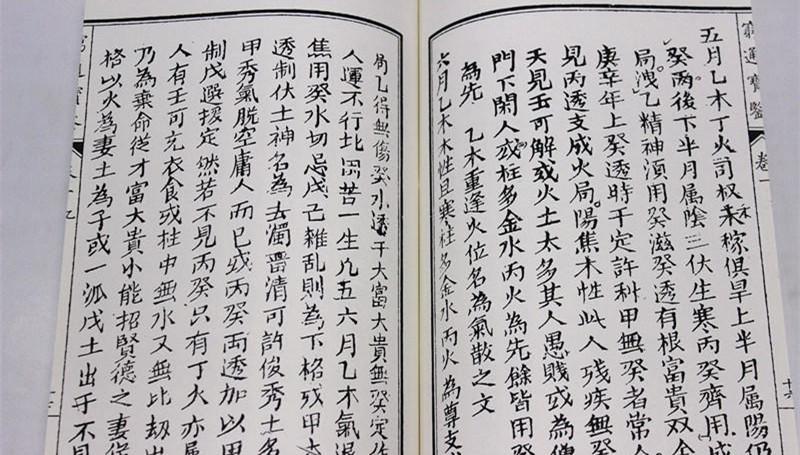 窮通寶鑒 卷一
五月乙木丁火司权禾稼俱旱上半月属陽仍
癸丙後下半月属陰三伏生寒丙癸齊用成
局洩乙精神湏用癸滋癸透有根富貴双全
庚辛年上癸透時干定許科甲無癸者常人
見丙透支成火局陽焦木性此人残疾無癸
天見壬可解或火土太多其人愚賎或為僧
門下閑人或柱多金水丙火為先餘皆用癸
為先 乙木重逢火位名為氣散之文
六月乙木木性且寒柱多金水丙火為尊支
十六
局乙得無傷癸水透干大富大貴無癸定作
人運不行北困苦一生凡五六月乙木氣退
焦用癸水切忌戊己雜乱則為下格或甲木
透制伏土神名為去濁畱清可許俊秀土多
甲秀氣脱空庸人而已或丙癸兩透加以甲
制戊選援定然若不見丙癸只有丁火亦属
人有壬可充衣食或柱中無水又無比刼出
乃為棄命從才富大貴小能招賢德之妻
格以火為妻土為子或一派戊土出于不見